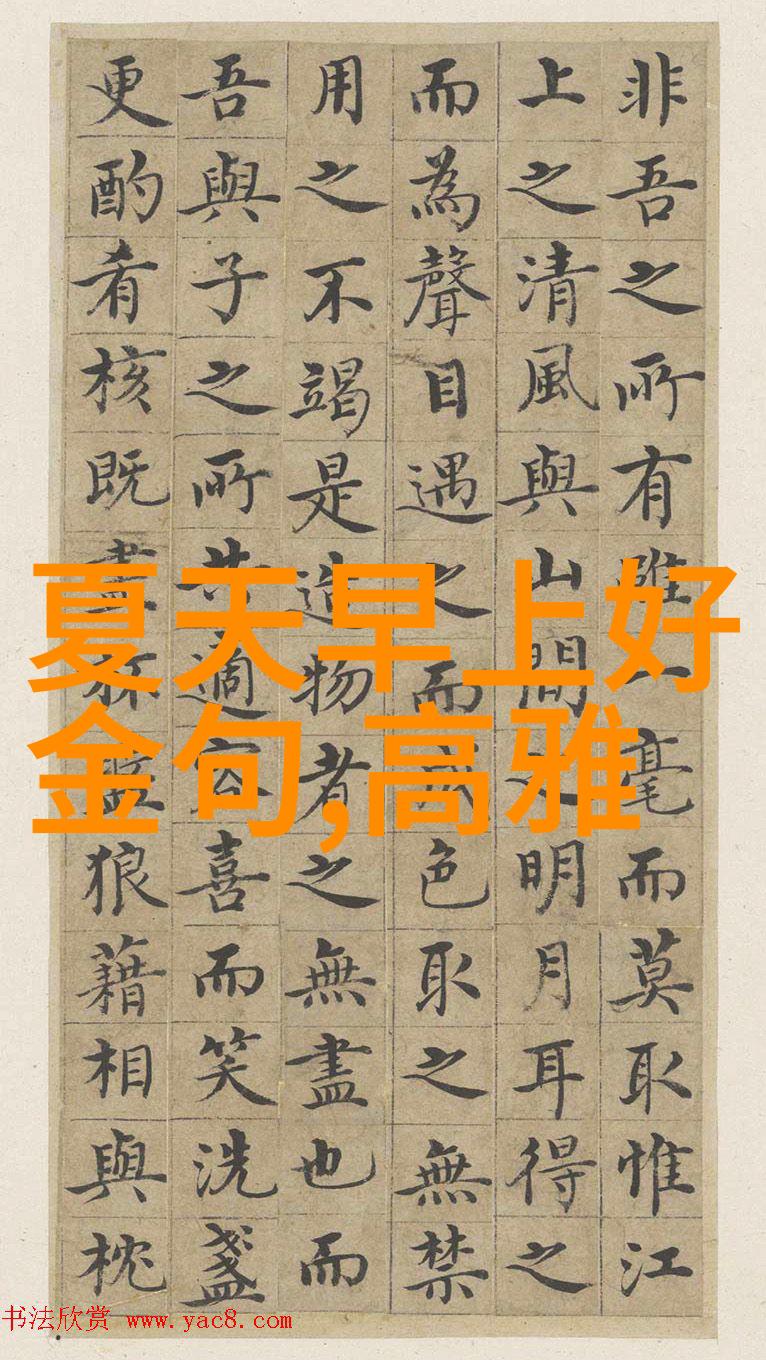 非吾之所有雖一毫而莫取惟江
上之清風與山間之明月耳得之
而為聲目遇之而成色取之無禁
用之不竭是造物者之無盡也而
吾與子之所共適客喜而笑洗盞
更酌肴核既盡杯盤狼藉相與枕
夏天早上好
金句,高雅
书法欣赏 www.yac8.com